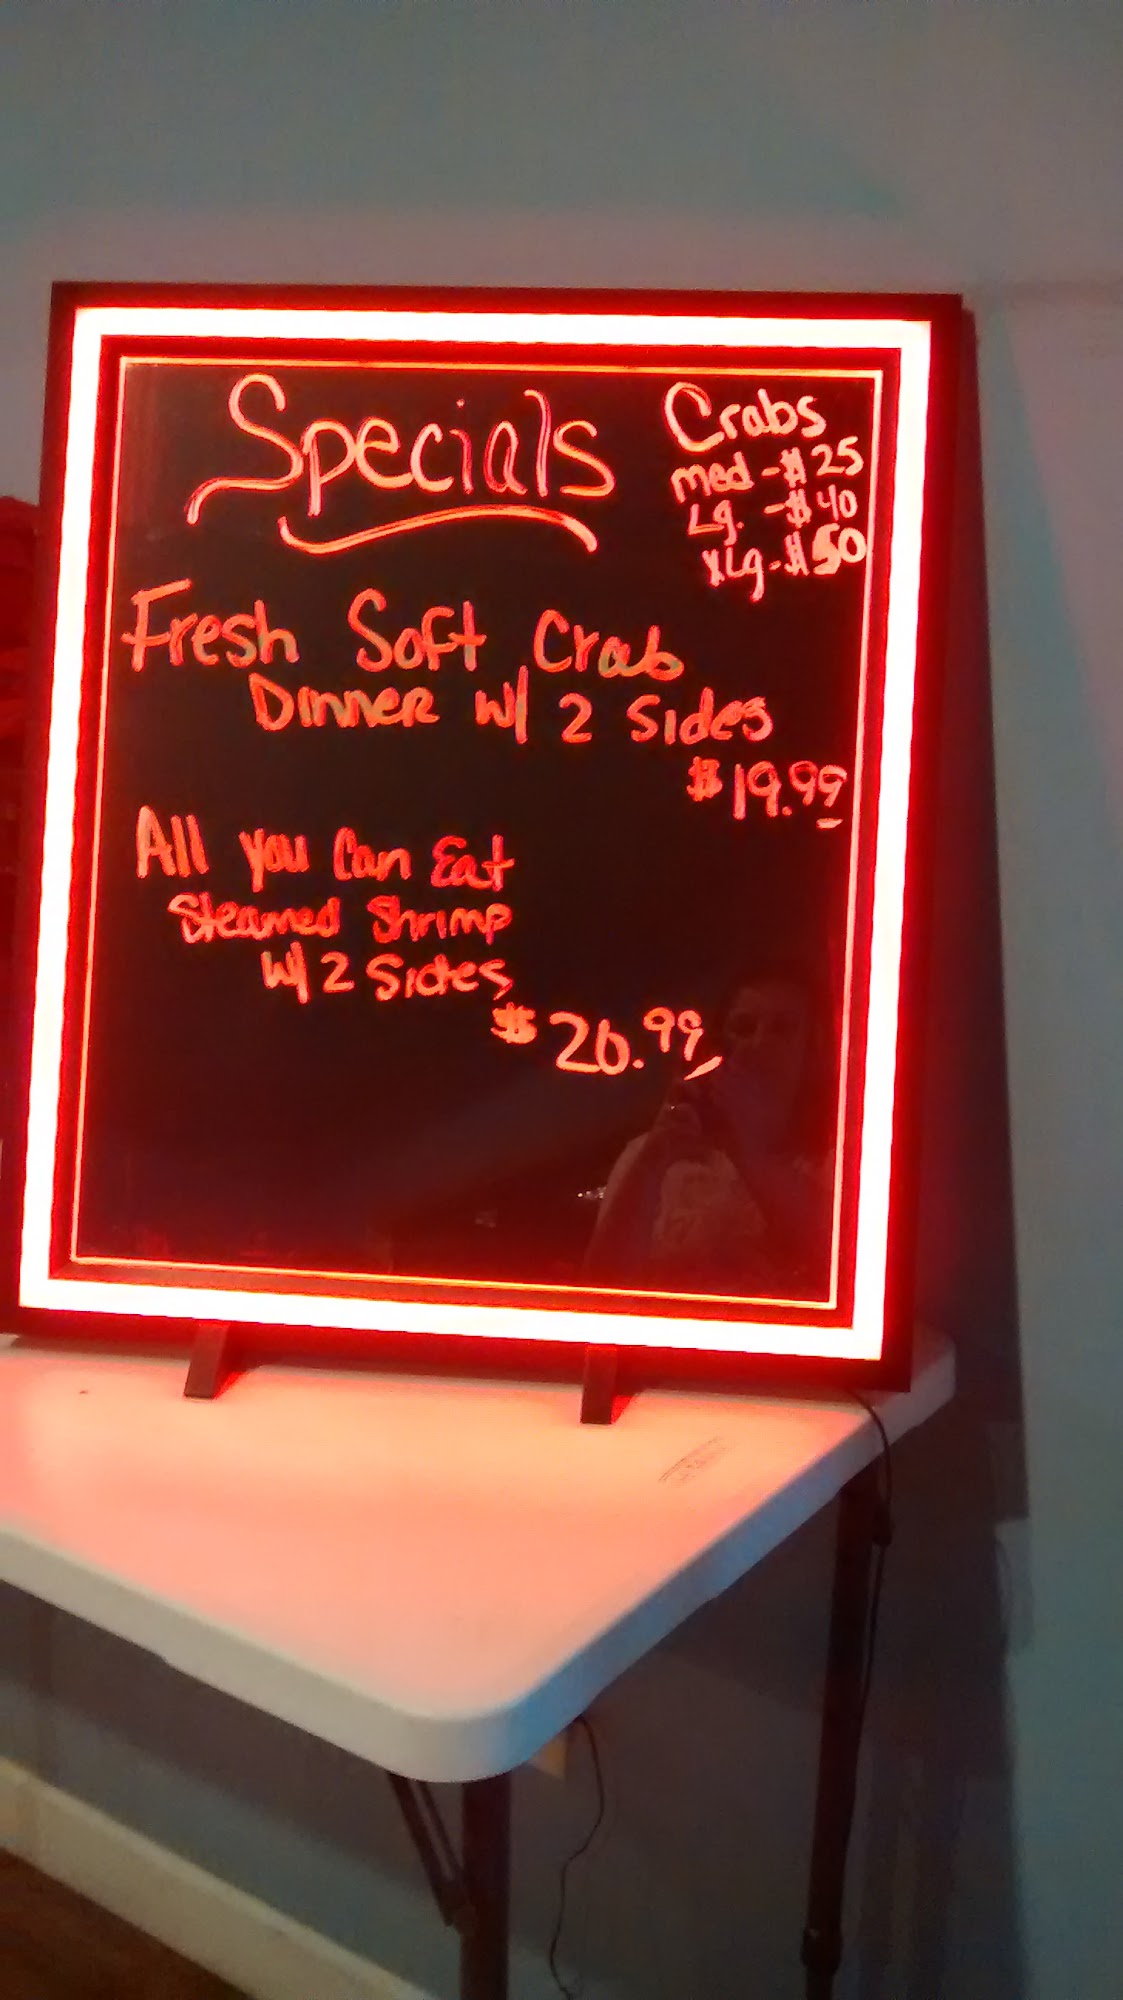 Specials
Crabs
med - $25
Lg. - $40
XLg - $50
Fresh Soft Crab
Dinner w/ 2 Sides
$19.99
All you Can Eat
Steamed Shrimp
w/ 2 Sides
$20.99